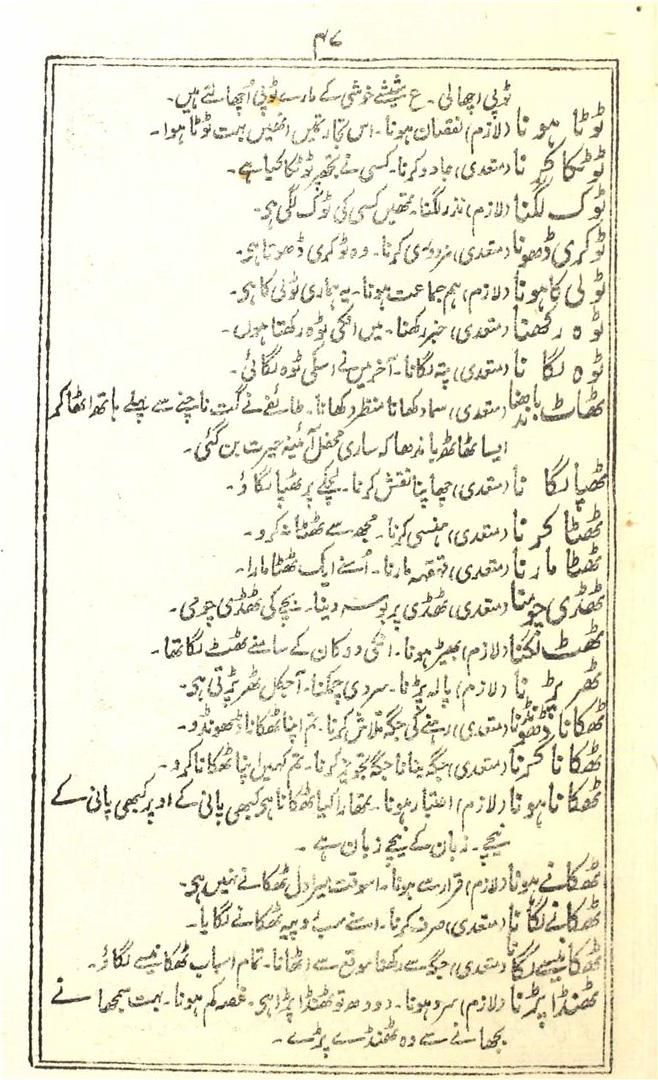 ۴۷
ٹوپی اچھالی۔ ع شیشے خوشی کے مارے ٹوپی اُچھالتے ہیں۔
ٹوٹا ہونا (لازم) نقصان ہونا۔ اس تجارتمیں انھیں بہت ٹوٹا ہوا۔
ٹوٹکا کرنا (متعدی) جادو کرنا۔ کسی نے تجھپر ٹوٹکا کیا ہے۔
ٹوک لگنا (لازم) نذر لگنا۔ تمھیں کسی کی ٹوک لگی ہی۔
ٹوکری ڈھونا (متعدی) مزدوری کرنا۔ وہ ٹوکری ڈھوتا ہی۔
ٹولی کا ہونا (لازم) ہم جماعت ہونا۔ یہ ہماری ٹولی کا ہی۔
ٹوہ رکھنا (متعدی) خبر رکھنا۔ میں اُنکی ٹوہ رکھتا ہوں۔
ٹوہ لگانا (متعدی) پتہ لگانا۔ آخر میں نے اسکی ٹوہ لگائی۔
ٹھاٹ باندھنا (متعدی) سما دکھانا منظر دکھانا۔ طائفے نے گت ناچنے سے پہلے ہاتھ اٹھا کر
ایسا ٹھاٹھ باندھا کہ ساری محفل آئینہ حیرت بن گئی۔
ٹھپا لگانا (متعدی) چھاپنا نقش کرنا۔ لچکے پر ٹھپا لگاؤ۔
ٹھٹا کرنا (متعدی) ہنسی کرنا۔ مجھ سے ٹھٹا نہ کرو۔
ٹھٹا مارنا (متعدی) قہقہہ مارنا۔ اُسنے ایک ٹھٹا مارا۔
ٹھڈی چومنا (متعدی) ٹھڈی پر بوسہ دینا۔ بچے کی ٹھڈی چومی۔
ٹھٹ لگنا (لازم) بھیڑ ہونا۔ انکی دوکان کے سامنے ٹھٹ لگا تھا۔
ٹھر پڑنا (لازم) پالہ پڑنا۔ سردی چمکنا۔ آجکل ٹھر پڑتی ہی۔
ٹھکانا ڈھونڈنا (متعدی) رہنے کی جگہ تلاش کرنا۔ تم اپنا ٹھکانا ڈھونڈو۔
ٹھکانا کرنا (متعدی) جگہ بنانا جگہ تجویز کرنا۔ تم کہیں اپنا ٹھکانا کرو۔
ٹھکانا ہونا (لازم) اعتبار ہونا۔ تمھارا کیا ٹھکانا ہی کبھی پانی کے اوپر کبھی پانی کے
نیچے۔ زبان کے نیچے زبان ہے۔
ٹھکانے ہونا (لازم) قرار سے ہونا۔ اسوقت میرا دل ٹھکانے نہیں ہی۔
ٹھکانے لگانا (متعدی) صرف کرنا۔ اسنے سب روپیہ ٹھکانے لگایا۔
ٹھکانیسے لگانا (متعدی) جگہ سے رکھنا موقع سے اٹھانا۔ تمام اسباب ٹھکانیسے لگاؤ۔
ٹھنڈا پڑنا (لازم) سرد ہونا۔ دودھ تو ٹھنڈا پڑا ہی۔ غصہ کم ہونا۔ بہت سمجھانے
بجھانے سے وہ ٹھنڈے پڑے۔